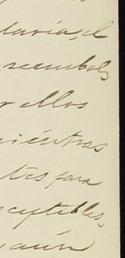 daría, el
reembols
r ellos
iéntras
tes para
sceptibles,